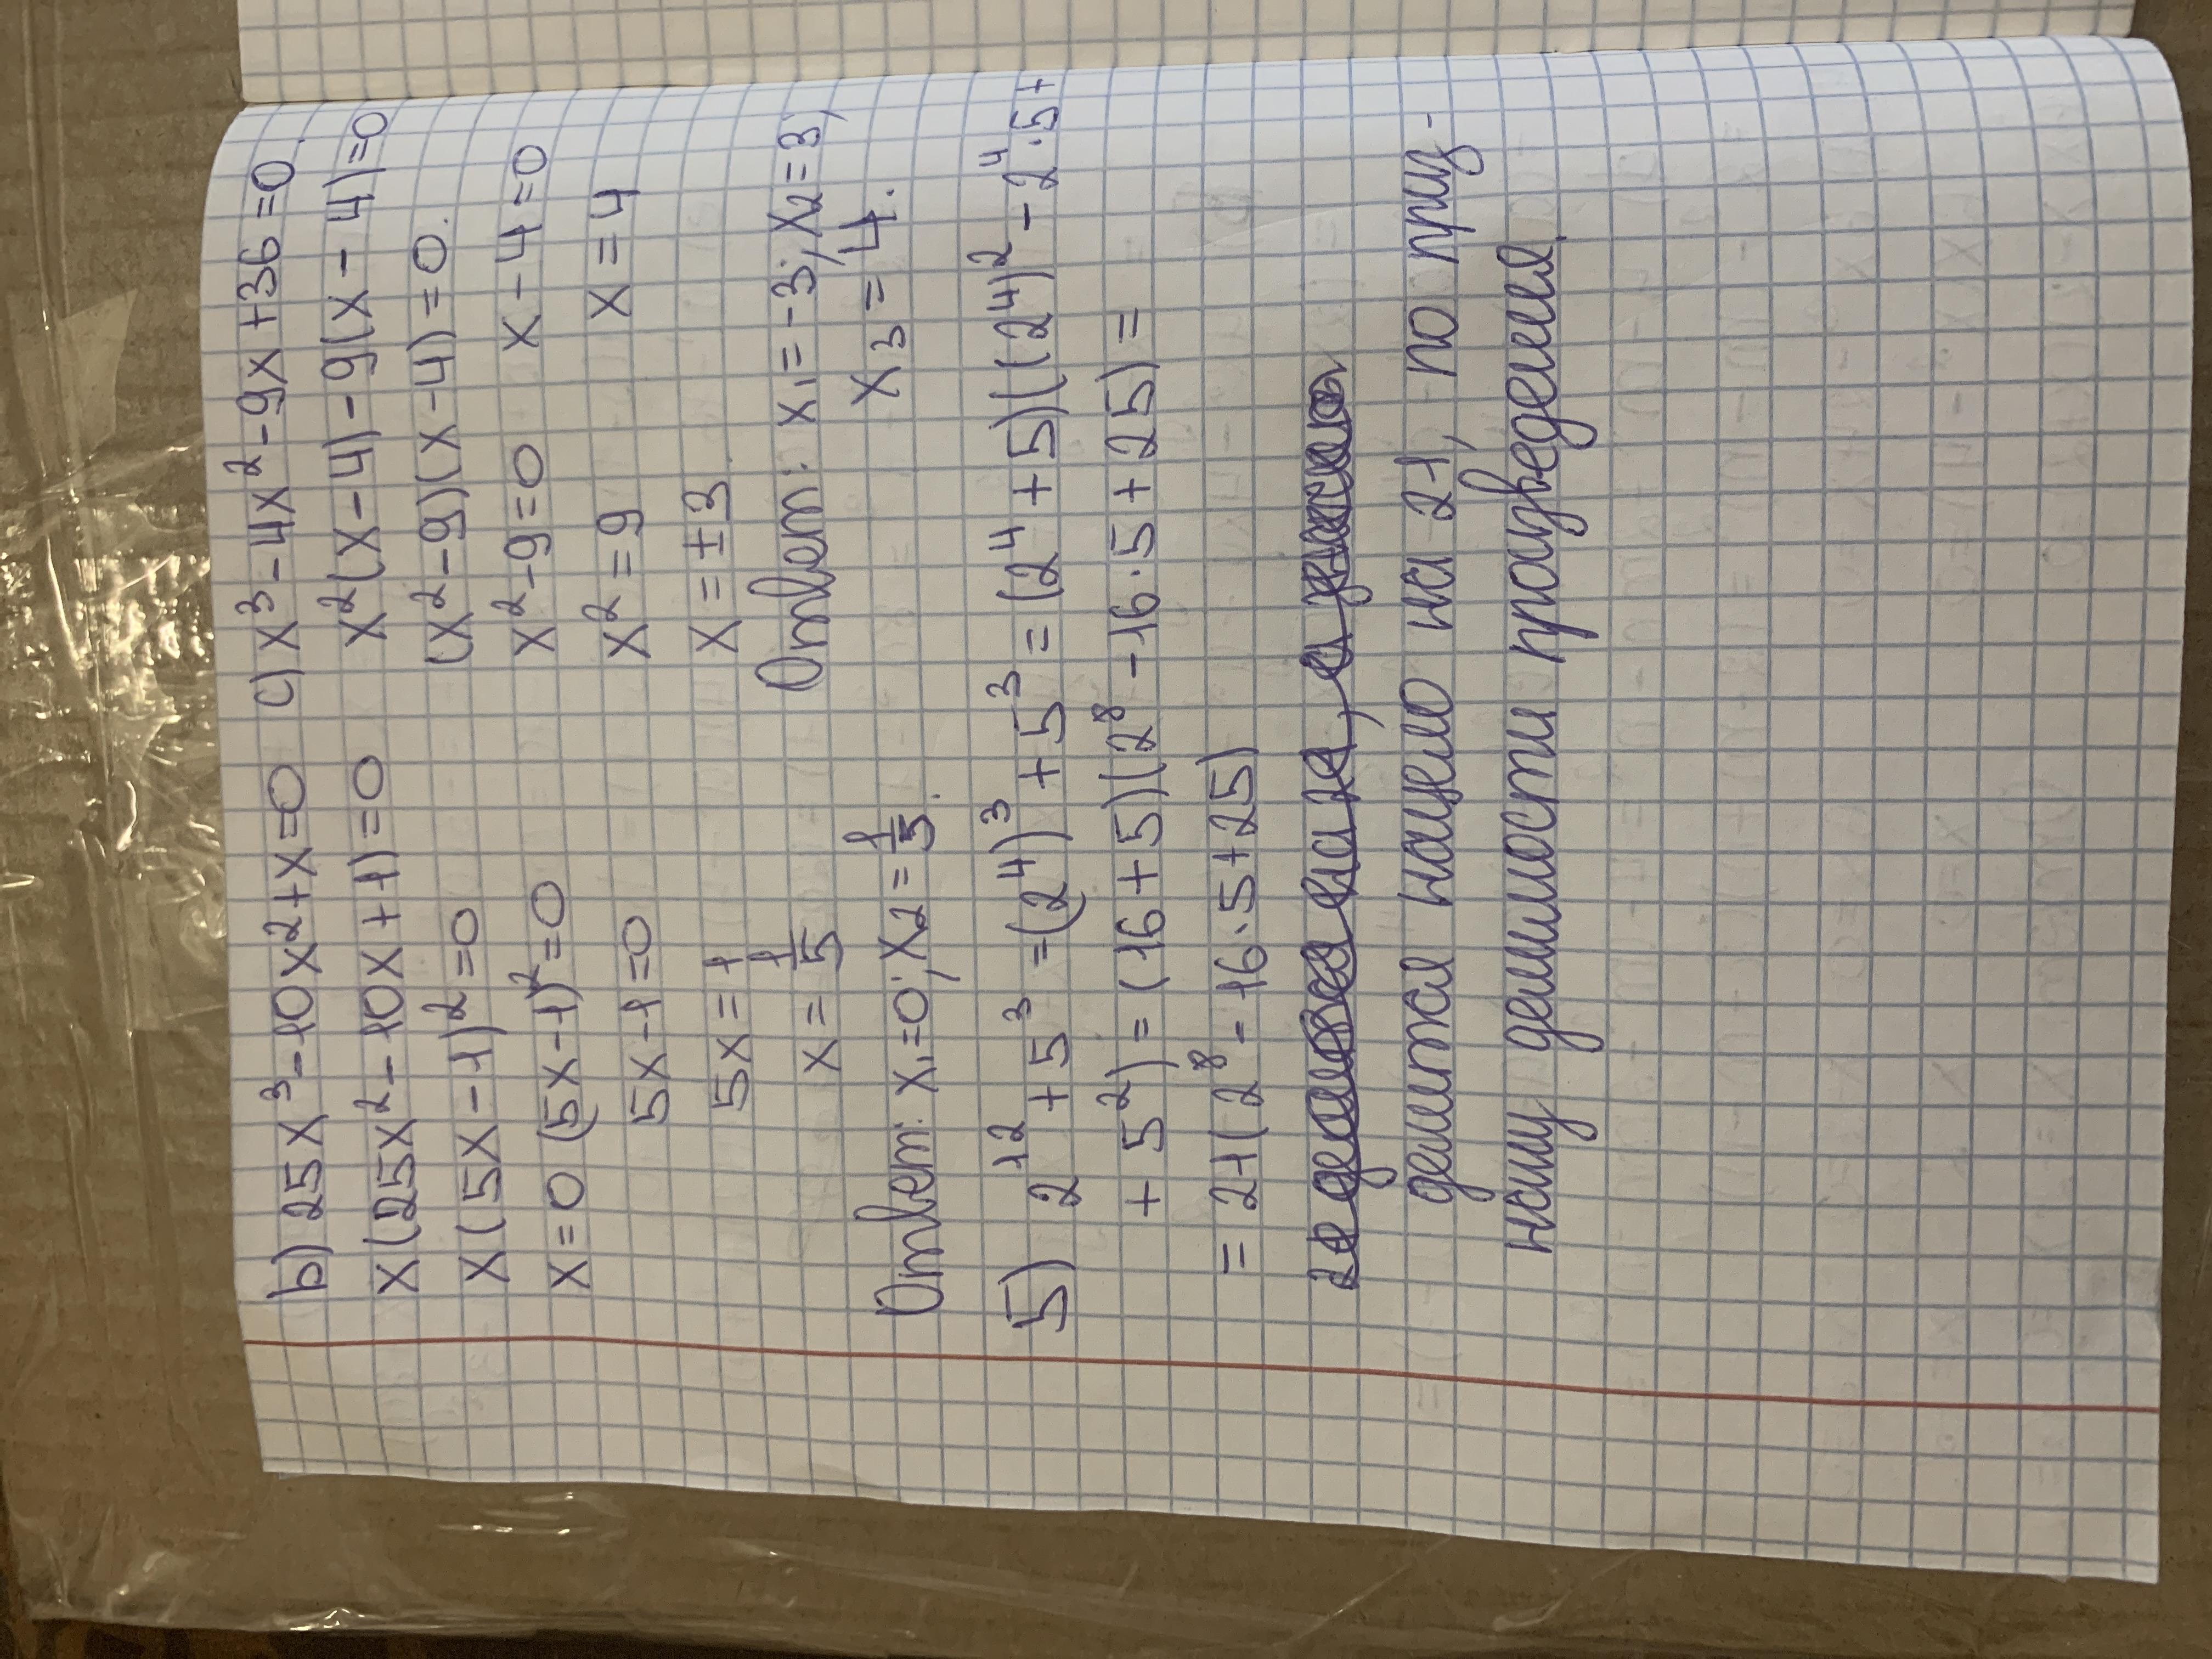 b) 25x³-10x²+x=0
x(25x²-10x+1)=0
x(5x-1)²=0
x=0 (5x-1)²=0
5x-1=0
5x=1
x=1/5
Ответ: x₁=0; x₂=1/5.
c) x³-4x²-9x+36=0.
x²(x-4)-9(x-4)=0
(x²-9)(x-4)=0.
x²-9=0 x-4=0
x²=9 x=4
x=±3
Ответ: x₁=-3; x₂=3;
x₃=4.
5) 2¹²+5³=(2⁴)³+5³=(2⁴+5)((2⁴)²-2⁴·5+
+5²)=(16+5)(2⁸-16·5+25)=
=21(2⁸-16·5+25)
делится нацело на 21, по приц-
наку делимости произведения.